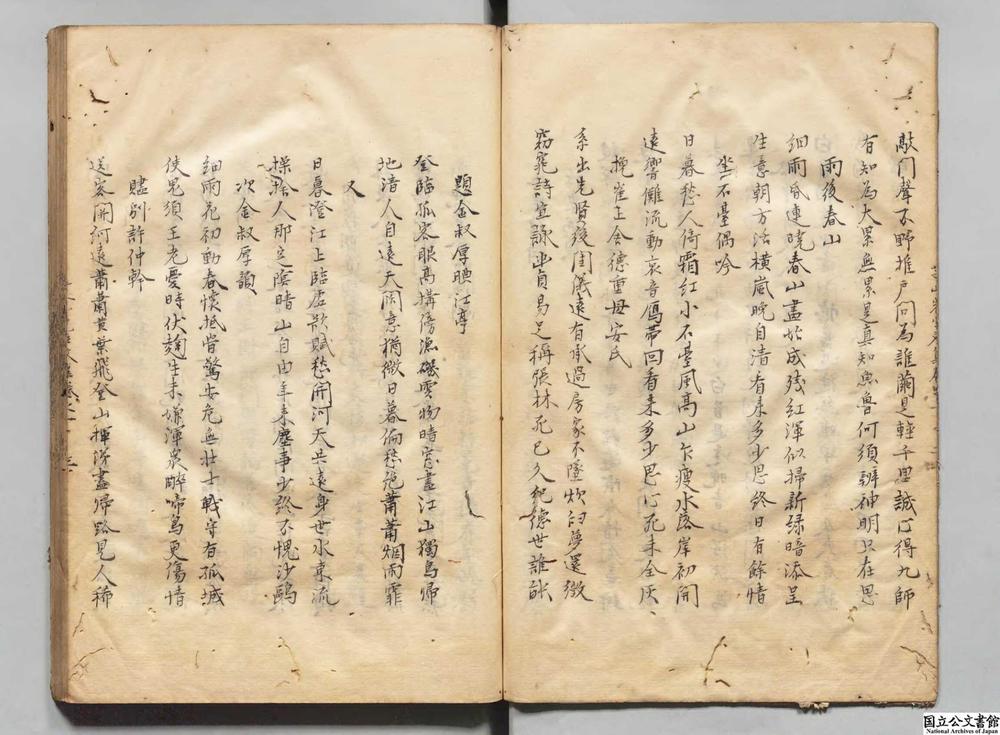 敲门聲不野推户问為誰繭是輕千思誠心得九師
有知為大累無累是真知愚魯何須辨神明只在思
雨後春山
細雨昏連曉春山盡於成殘紅渾似掃新緑暗添呈
生意朝方活横嵐晚自清看来多少思終日有餘情
坐不臺偶吟
日暮愁人倚霜紅小不臺風高山乍瘦水落岸初開
遠響儺流動哀音鴈帶回看来多少思心死未全灰
挽崔上舍德重母安氏
系出先賢後閨儀遠有承過房家不墜炊臼夢還徵
窈窕詩宜詠幽貞易足稱張林死已久紀德世誰能
題金叔厚聴江亭
登臨孤客眼高搆傍漁磯雲物暗窓盡江山獨鳥歸
地清人自遠天闊意猶微日暮偏愁絶蕭蕭烟雨霏
又
日暮澄江上臨虚欲賦愁開河天共遠身世水東流
操捨人那立陰晴山自由年来塵事少終不愧沙鷗
次金叔厚韻
細雨花初動春懐抵當驚安危無壮士戦守有孤城
使鬼須王老憂時伏麹生未嫌渾衆醉啼鳥更傷情
贐别許仲幹
送客開何遠蕭蕭黄葉飛登山揮涕盡歸路見人稀
国立公文書館
National Archives of Japan